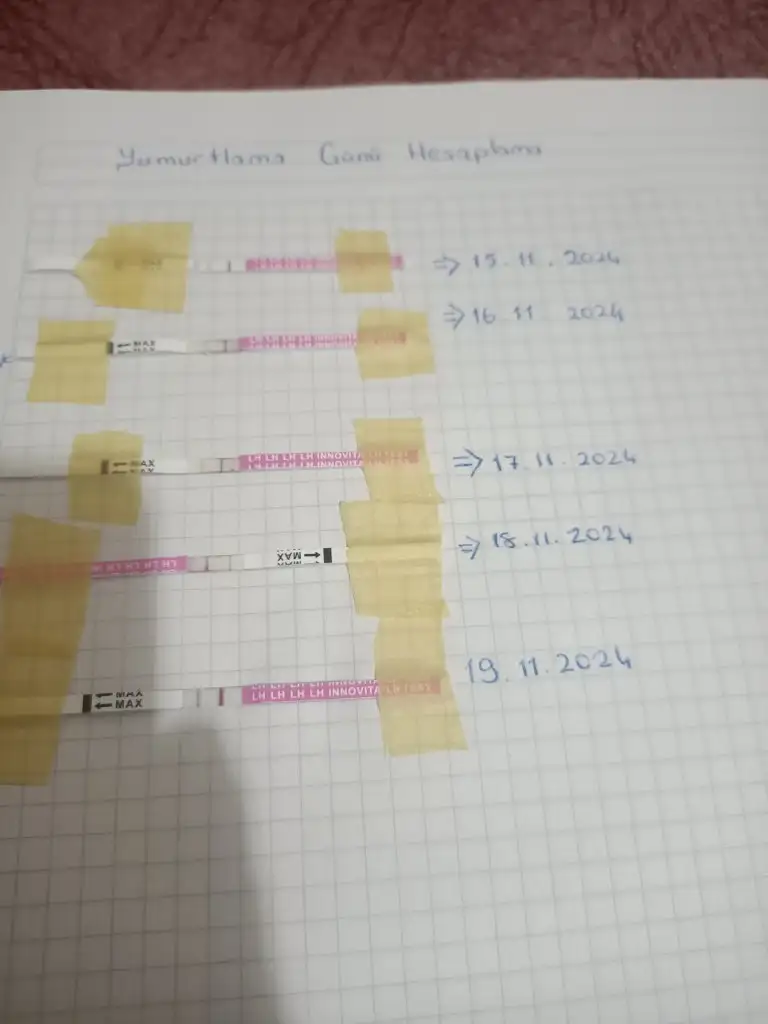 Yumurtlama Günü Hesaplama
⇒ 15.11.2024
⇒ 16 11 2024
← MAX
LH LH LH LH INNOVITA
← MAX
LH LH LH LH INNOVITA
⇒ 17.11.2024
MAX →
LH LH LH LH
⇒ 18.11.2024
← MAX
LH LH LH LH INNOVITA LH TEST
19.11.2024